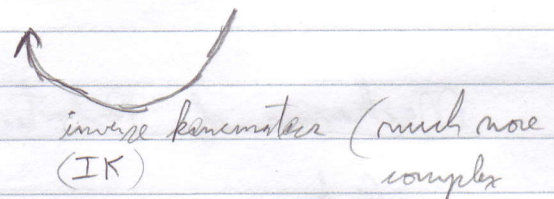 inverse kinematics (much more
(IK) complex